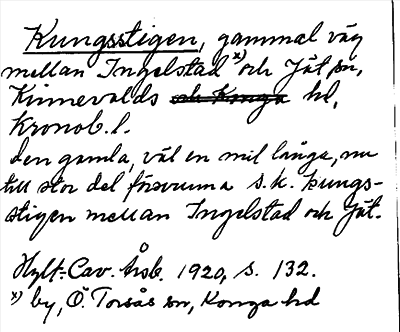 Kungsstigen, gammal väg
mellan Ingelstad x) och Jät sn,
Kinnevalds och Konga hd,
Kronob. l.
den gamla, väl en mil långa, nu
till stor del försvunna s.k. Kungs-
stigen mellan Ingelstad och Jät.
Hylt-Cav. Årsb. 1920, s. 132.
x) by, Ö. Torsås sn, Konga hd